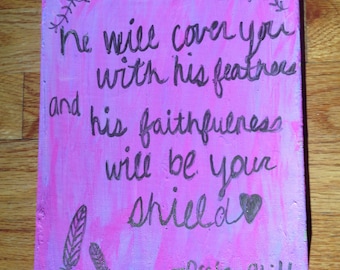 he will cover you
with his feathers
and his faithfulness
will be your
shield♥